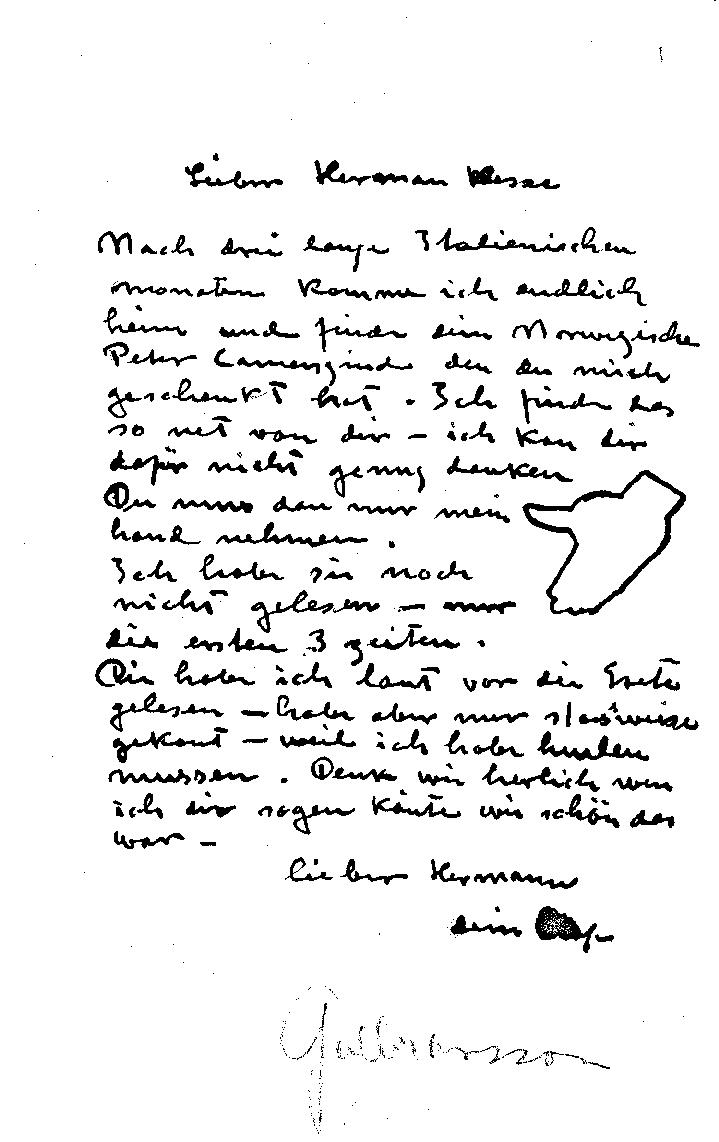 Lieber Herman Hesse
Nach drei lange Italienischen
monaten komme ich endlich
heim und finde ein Norwegische
Peter Camenzinde den du mich
geschenkt hat. Ich finde das
so net von dir – ich kan dir
dafür nicht genug danken
Du mus dan nur mein
hand nehmen.
Ich habe sie noch
nicht gelesen – nur
die ersten 3 zeiten.
Die habe ich laut vor die Grete
gelesen – habe aber nur stosweise
gekont – weil ich habe heulen
mussen. Denk wie herlich wen
ich dir sagen könte wie schön das
war –
lieber Hermann
dein
Gulbransson